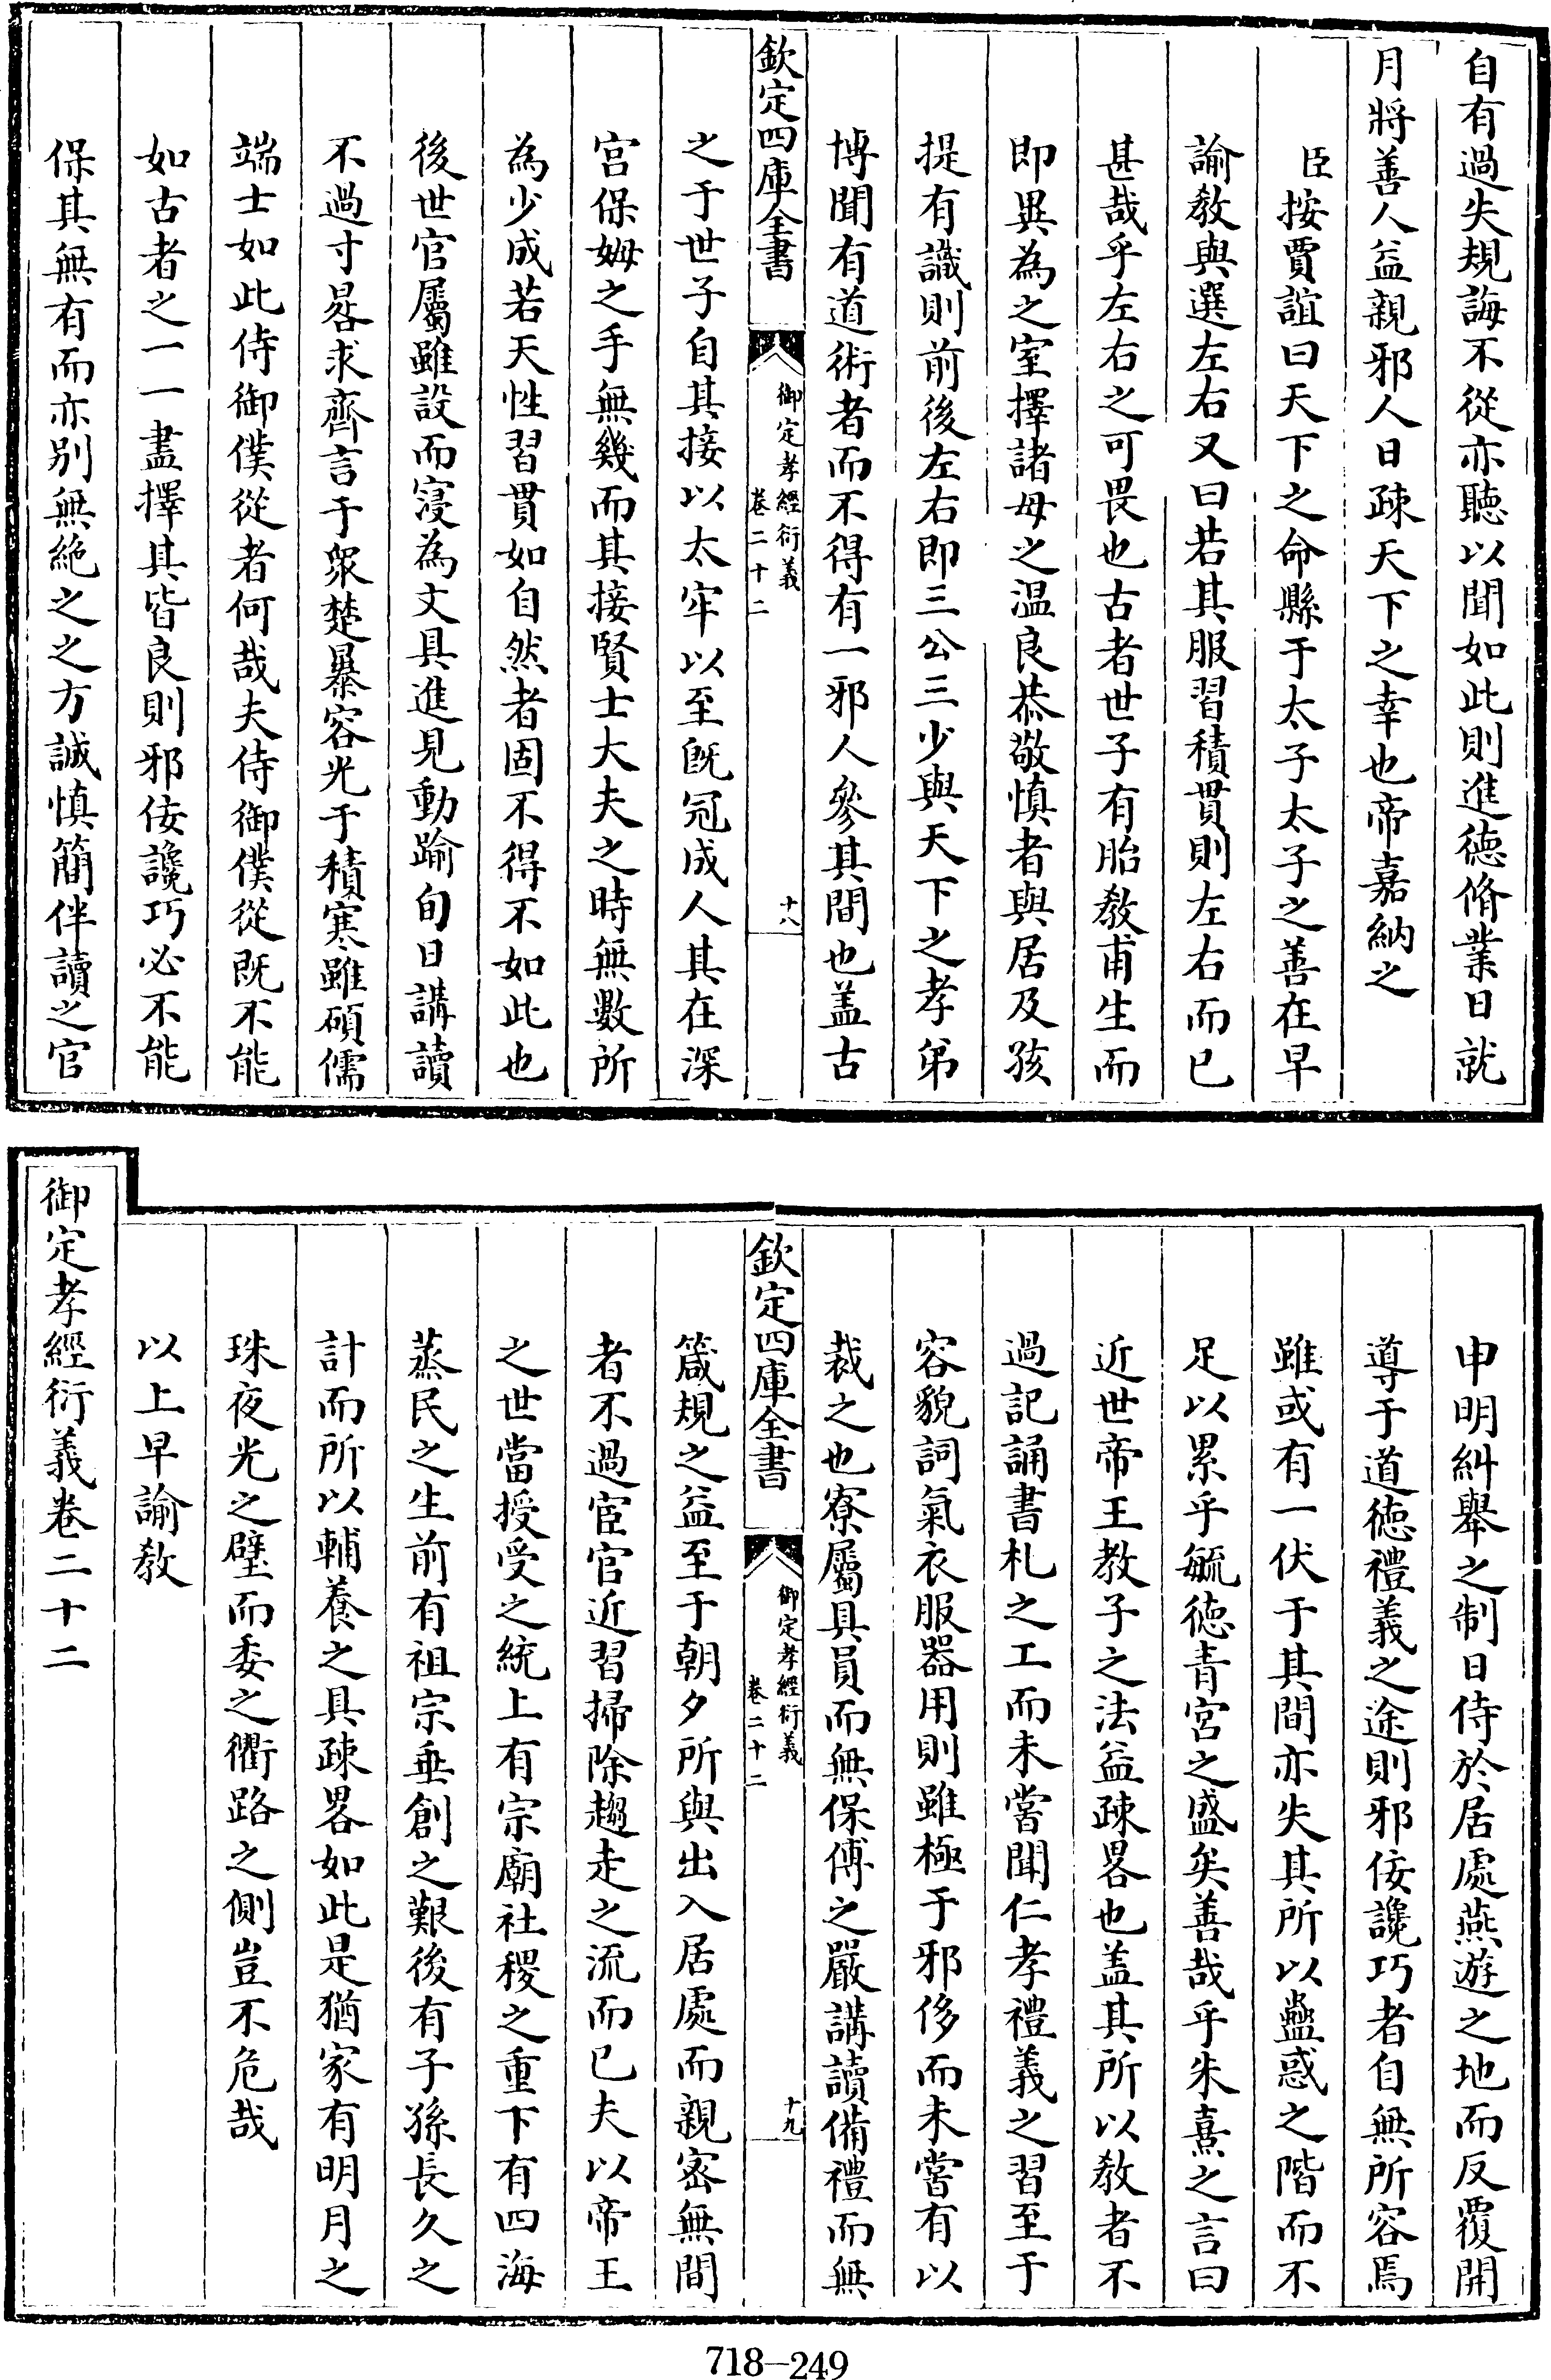 自有過失規誨不從亦聽以聞如此則進徳脩業日就
月將善人益親邪人日疎天下之幸也帝嘉納之
臣按賈誼曰天下之命縣于太子太子之善在早
諭教與選左右又曰若其服習積貫則左右而已
甚哉乎左右之可畏也古者世子有胎教甫生而
即異為之室擇諸母之温良恭敬慎者與居及孩
提有識則前後左右即三公三少與天下之孝弟
博聞有道術者而不得有一邪人參其間也盖古
欽定四庫全書
御定孝經衍義
卷二十二
十八
之于世子自其接以太牢以至旣冠成人其在深
宫保姆之手無幾而其接賢士大夫之時無數所
為少成若天性習貫如自然者固不得不如此也
後世官屬雖設而寖為文具進見動踰旬日講讀
不過寸晷求齊言于衆楚暴容光于積寒雖碩儒
端士如此侍御僕從者何哉夫侍御僕從既不能
如古者之一一盡擇其皆良則邪佞讒巧必不能
保其無有而亦别無絶之之方誠慎簡伴讀之官
申明糾舉之制日侍於居處燕遊之地而反覆開
導于道徳禮義之途則邪佞讒巧者自無所容焉
雖或有一伏于其間亦失其所以蠱惑之階而不
足以累乎毓徳青宫之盛矣善哉乎朱熹之言曰
近世帝王教子之法益疎畧也盖其所以教者不
過記誦書札之工而未嘗聞仁孝禮義之習至于
容貌詞氣衣服器用則雖極于邪侈而未嘗有以
裁之也寮屬具員而無保傅之嚴講讀備禮而無
欽定四庫全書
御定孝經衍義
卷二十二
十九
箴規之益至于朝夕所與出入居處而親密無間
者不過宦官近習掃除趨走之流而已夫以帝王
之世當授受之統上有宗廟社稷之重下有四海
蒸民之生前有祖宗垂創之艱後有子孫長久之
計而所以輔養之具疎畧如此是猶家有明月之
珠夜光之璧而委之衢路之側豈不危哉
以上早諭教
御定孝經衍義卷二十二
718-249